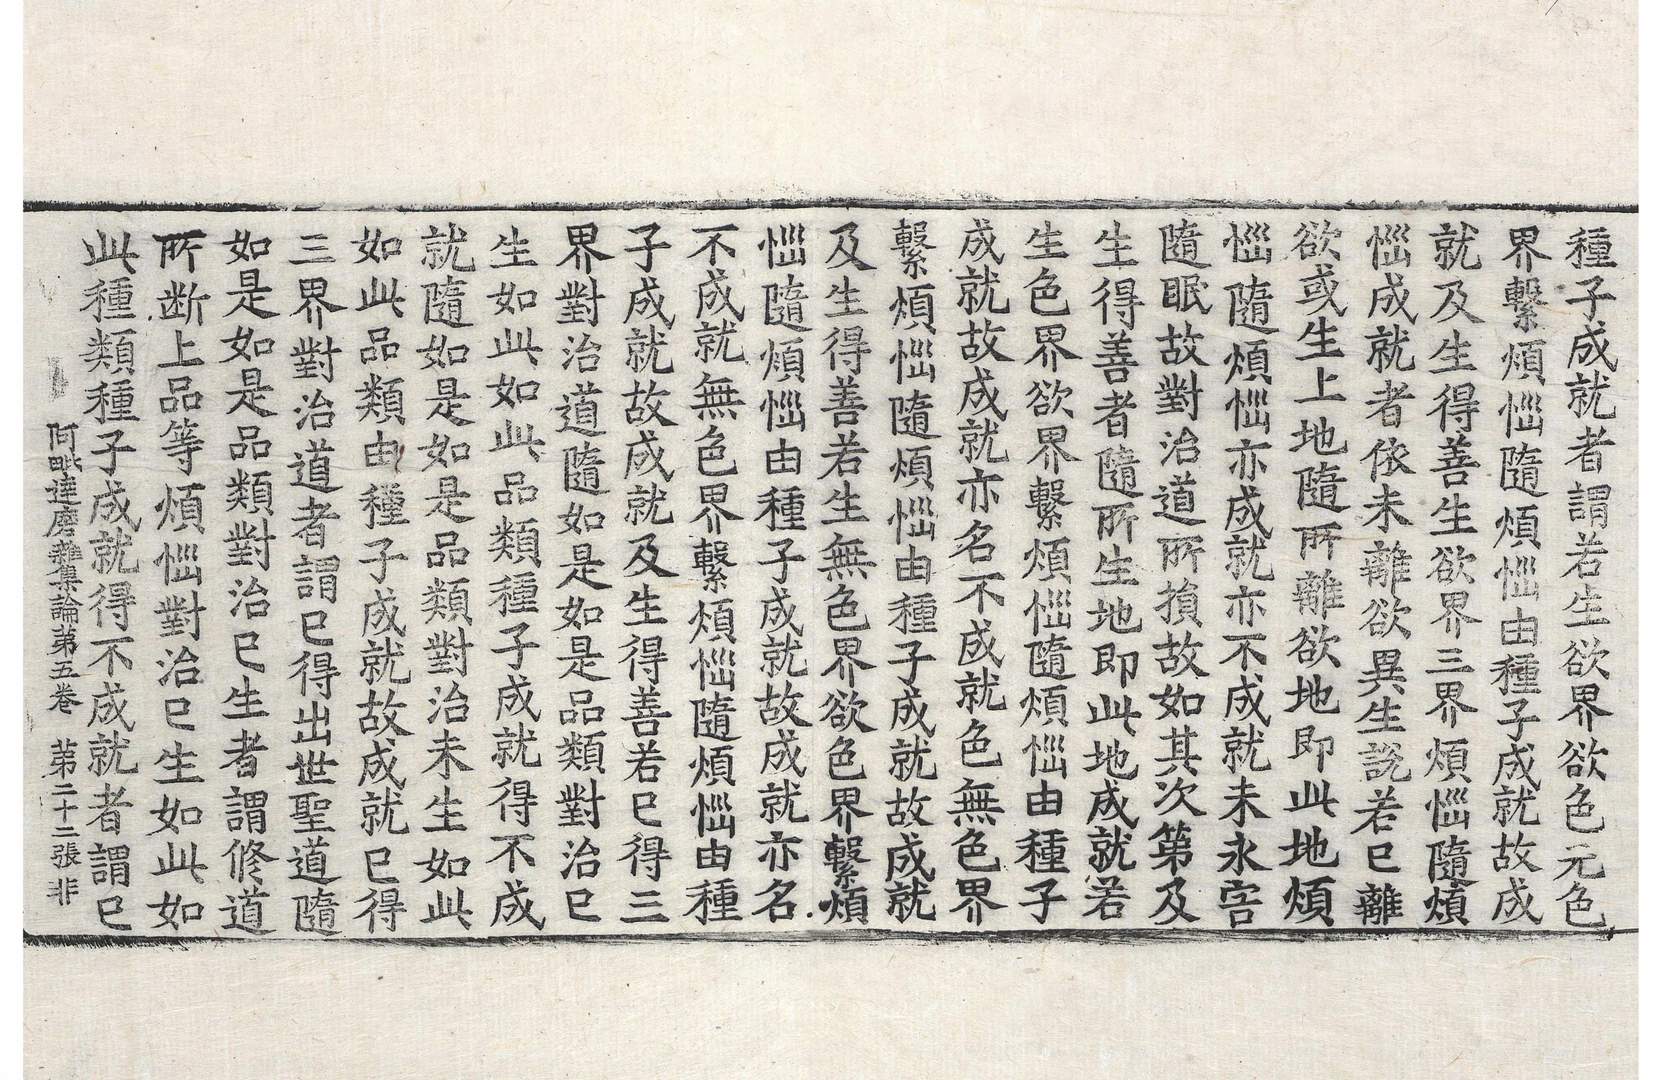 種子成就者謂若生欲界欲色元色
界繫煩惱隨煩惱由種子成就故成
就及生得善生欲界三界煩惱隨煩
惱成就者依未離欲異生説若已離
欲或生上地隨所離欲地即此地煩
惱隨煩惱亦成就亦不成就未永害
隨眠故對治道所損故如其次第及
生得善者隨所生地即此地成就若
生色界欲界繫煩惱隨煩惱由種子
成就故成就亦名不成就色無色界
繫煩惱隨煩惱由種子成就故成就
及生得善若生無色界欲色界繫煩
惱隨煩惱由種子成就故成就亦名
不成就無色界繫煩惱隨煩惱由種
子成就故成就及生得善若已得三
界對治道隨如是如是品類對治已
生如此如此品類種子成就得不成
就隨如是如是品類對治未生如此
如此品類由種子成就故成就已得
三界對治道者謂已得出世聖道隨
如是如是品類對治已生者謂修道
所断上品等煩惱對治已生如此如
此種類種子成就得不成就者謂已
阿毗達磨雜集論苐五卷 苐二十二張 非